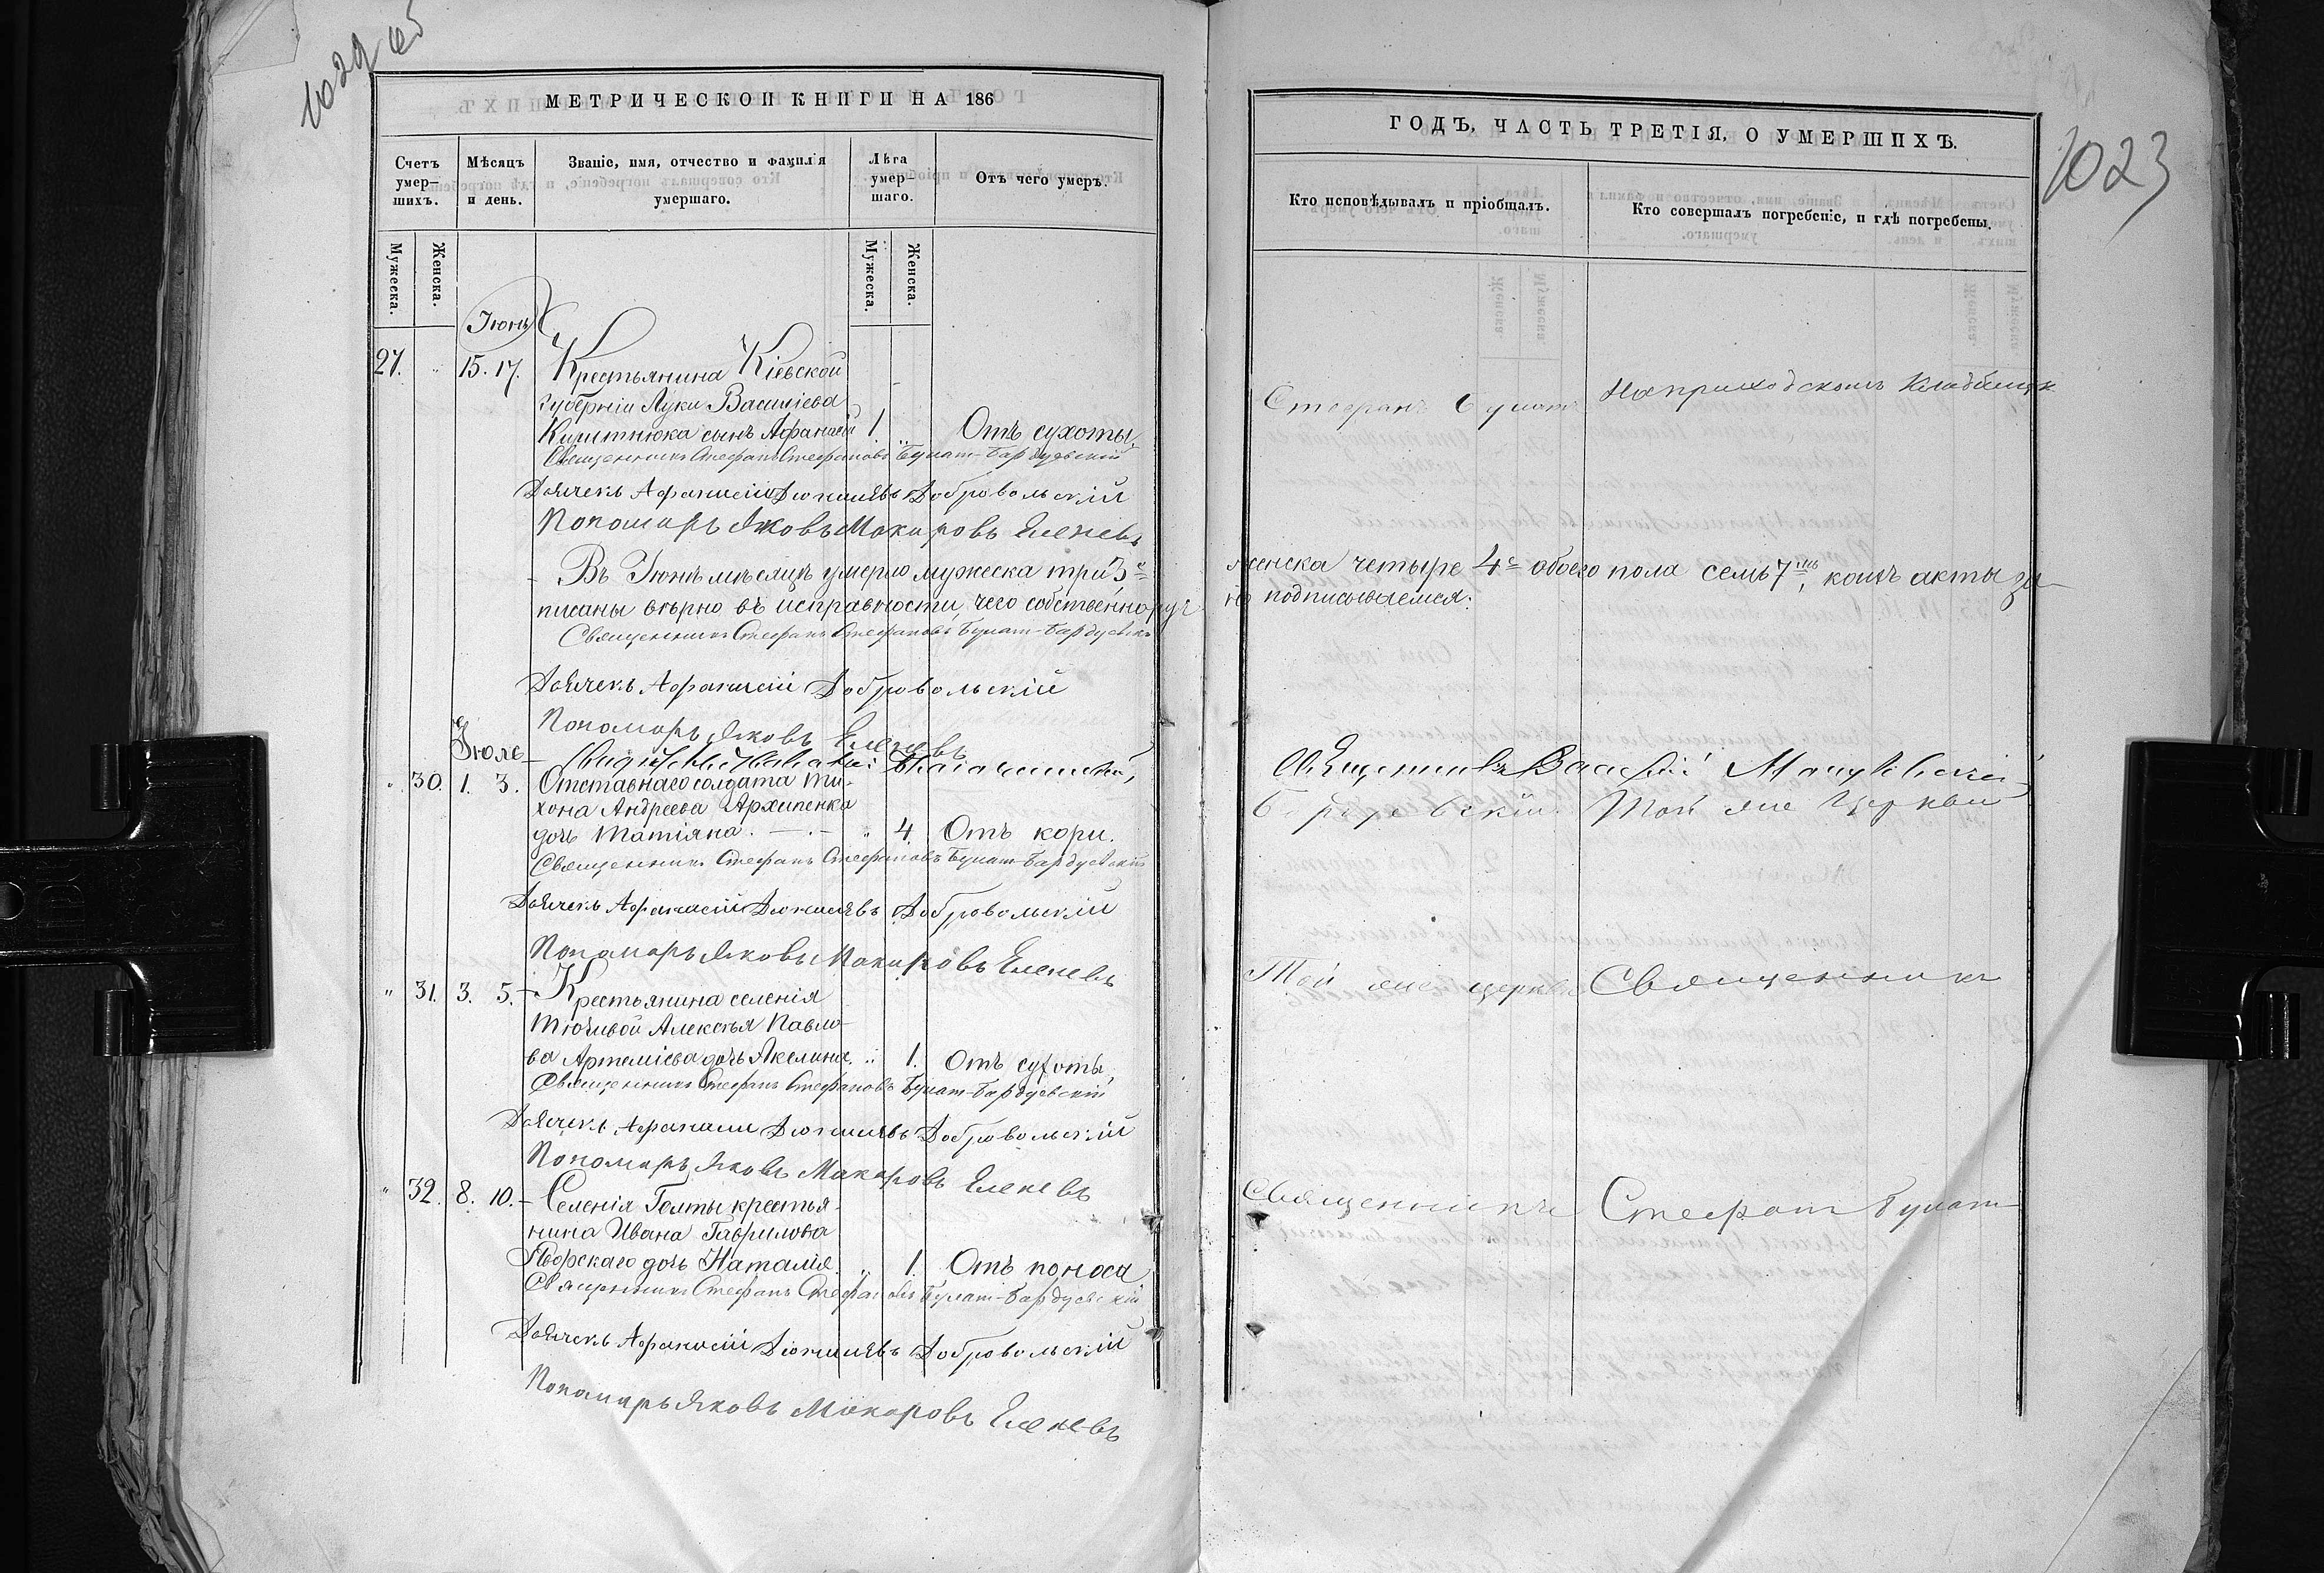 1023
МЕТРИЧЕСКОЙ КНИГИ НА 186
Счетъ умер-шихъ.
Мѣсяцъ и день.
Званіе, имя, отчество и фамилія умершаго.
Лѣта умер-шаго.
Отъ чего умеръ.
Мужеска.
Женска.
Мужеска.
Женска.
Іюнь
27. „ 15. 17. Крестьянина Кіевской
губерніи Луки Василіева
сынъ Афанасій 1. „ Отъ сухоты.
Священникъ Стефанъ Стефановъ Булат-Бардуевскій
Дьячекъ Афанасій Добровольскій
Пономарь Яковъ Макаровъ Еленевъ
Въ Іюнѣ мѣсяцѣ умерло мужеска три 3
писаны вѣрно въ исправности, чего собственнору-
Священникъ Стефанъ Стефановъ Булат-Бардуевскій
Дьячекъ Афанасій Добровольскій
Пономарь Яковъ Еленевъ
Іюль
„ 30. 1. 3. Отставнаго солдата Ти-
хона Андреева Архипенка
дочь Татіяна. „ 4. Отъ кори.
Священникъ Стефанъ Стефановъ Булат-Бардуевскій
Дьячекъ Афанасій Добровольскій
Пономарь Яковъ Макаровъ Еленевъ
„ 31. 3. 5. Крестьянина селенія
Алексѣя Павло-
ва Артеміева дочь Акелина. „ 1. Отъ сухоты,
Священникъ Стефанъ Стефановъ Булат-Бардуевскій
Дьячекъ Афанасій Добровольскій
Пономарь Яковъ Макаровъ Еленевъ
„ 32. 8. 10. Селенія Голты крестья-
нина Ивана Гаврилова
дочь Наталія. „ 1. Отъ поноса
Священникъ Стефанъ Стефановъ Булат-Бардуевскій
Дьячекъ Афанасій Добровольскій
Пономарь Яковъ Макаровъ Еленевъ
ГОДЪ, ЧАСТЬ ТРЕТІЯ, О УМЕРШИХЪ.
Кто исповѣдывалъ и пріобщалъ.
Кто совершалъ погребеніе, и гдѣ погребены.
Стефанъ Булатъ На приходскомъ кладбищѣ
женска четыре 4 обоего пола семь 7, коихъ акты за-
но подписываемся:
Священникъ Василій
Той же Церкви
Той же церкви Священникъ
Священникъ Стефанъ Булат-